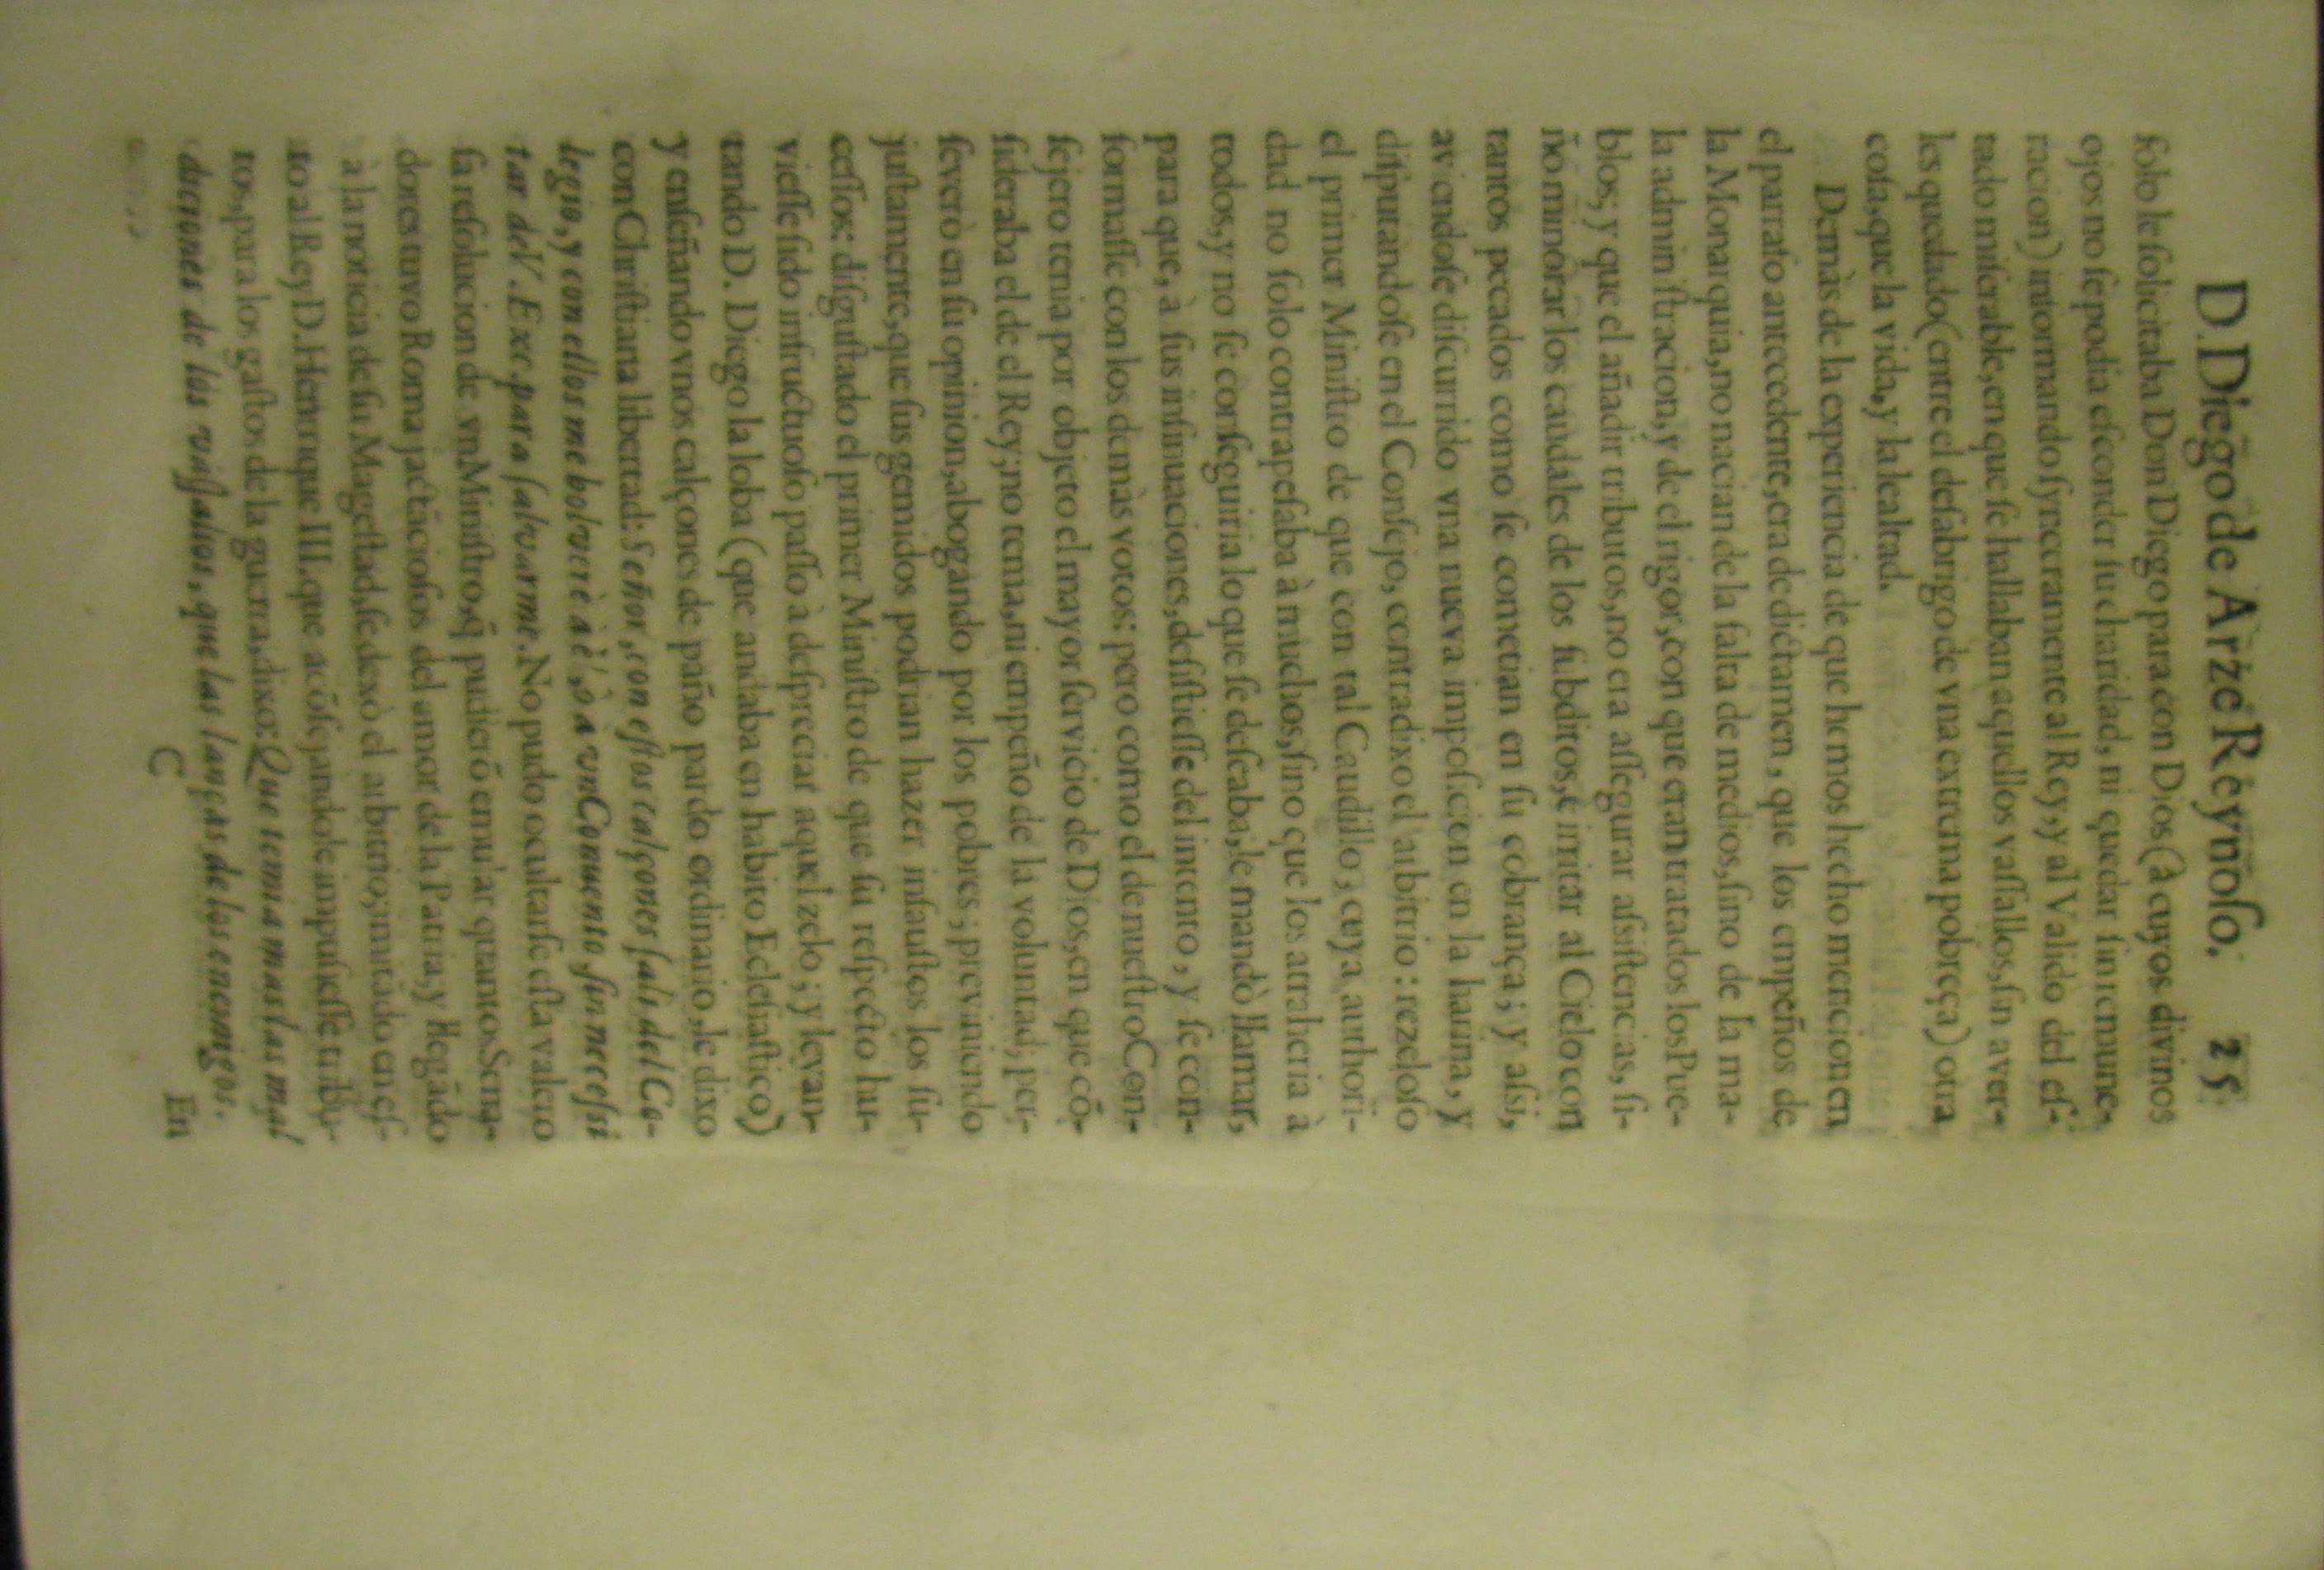 D. Diego de Arze Reynoso. 25
ſolo le ſolicitaba Don Diego para con Dios (à cuyos divinos
ojos no ſe podia eſconder ſu charidad, ni quedar ſin remune-
racion) informando ſynceramente al Rey, y al Valido del eſ-
tado miſerable, en que ſe hallaban aquellos vaſſallos, ſin aver-
les quedado (entre el deſabrigo de vna extrema pobreça) otra
coſa, que la vida, y la lealtad.
Demàs de la experiencia de que hemos hecho mencion en
el parrafo antecedente, era de dictamen, que los empeños de
la Monarquia, no nacian de la falta de medios, ſino de la ma-
la adminiſtracion, y de el rigor, con que eran tratados los Pue-
blos; y que el añadir tributos, no era aſſegurar aſsiſtencias, ſi-
ño minorar los caudales de los ſubditos, è irritar al Cielo con
tantos pecados como ſe cometian en ſu cobrança; y aſsi,
aviendoſe diſcurrido vna nueva impoſicion en la harina, y
diſputandoſe en el Conſejo, contradixo el arbitrio: rezeloſo
el primer Miniſtro de que con tal Caudillo, cuya authori-
dad no ſolo contrapeſaba à muchos, ſino que los atraheria à
todos, y no ſe conſeguiria lo que ſe deſeaba, le mandò llamar,
para que, à ſus inſinuaciones, deſiſtieſſe del intento, y ſe con-
formaſſe con los demàs votos: pero como el de nueſtro Con-
ſejero tenia por objeto el mayor ſervicio de Dios, en que cõ-
ſideraba el de el Rey; no temia, ni empeño de la voluntad; per-
ſeverò en ſu opinion, abogando por los pobres; previniendo
juſtamente, que ſus gemidos podrian hazer infauſtos los ſu-
ceſſos: diſguſtado el primer Miniſtro de que ſu reſpecto hu-
vieſſe ſido infructuoſo paſſo à deſpreciar aquel zelo; y levan-
tando D. Diego la loba (que andaba en habito Ecleſiaſtico)
y enſeñando vnos calçones de paño pardo ordinario, le dixo
con Chriſtiana libertad: Señor, con eſtos calçones ſali del Co-
legio, y con ellos me bolverè à èl, ò a vn Convento, ſin neceſsi
tar de V. Exc. para ſalvarme. No pudo ocultarſe eſta valero
ſa reſolucion de vn Miniſtro, q̃ pudierõ emular quantos Sena-
dores tuvo Roma jactācioſos del amor de la Patria, y llegādo
à la noticia de ſu Mageſtad, ſe dexò el arbitrio; imitādo en eſ-
to al Rey D. Henrrique III. que acõſejandole impuſieſſe tribu-
tos, para los gaſtos de la guerra, dixo: Que temia mas las mal
diciones de los vaſſallos, que las lanças de los enemigos.
C En